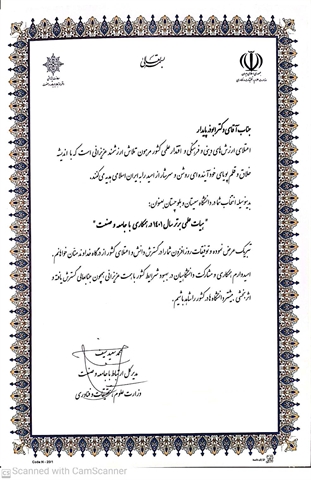 بسمه تعالی
جناب آقای دکتر ابوذر پایدار
اعتلای ارزش‌های دینی و فرهنگی و اقتدار علمی کشور مرهون تلاش ارزشمند عزیزانی است که با اندیشه
خلاق و قلم پویای خود آینده‌ای روشن و سرشار از امید را به ایران اسلامی هدیه می‌کنند.
بدینوسیله انتخاب شما در دانشگاه سیستان و بلوچستان بعنوان:
" هیات علمی برتر سال ۱۴۰۱ در همکاری با جامعه و صنعت "
تبریک عرض نموده و توفیقات روزافزون شما در گسترش دانش و اعتلای کشور از درگاه خداوند منان خواهانم.
امیدوارم همکاری و مشارکت دانشگاهیان در بهبود شرایط کشور با همت عزیزانی همچون جنابعالی گسترش یافته و
اثربخشی بیشتر دانشگاه‌ها در کشور را شاهد باشیم.
محمد سعید سیف
مدیرکل ارتباط با جامعه و صنعت
وزارت علوم، تحقیقات و فناوری
Code H - 201
Scanned with CamScanner